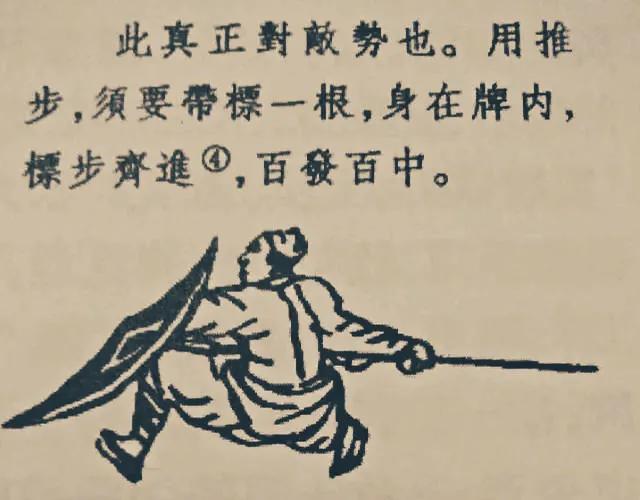 此真正對敵勢也。用推
步，須要帶標一根，身在牌内，
標步齊進④，百發百中。